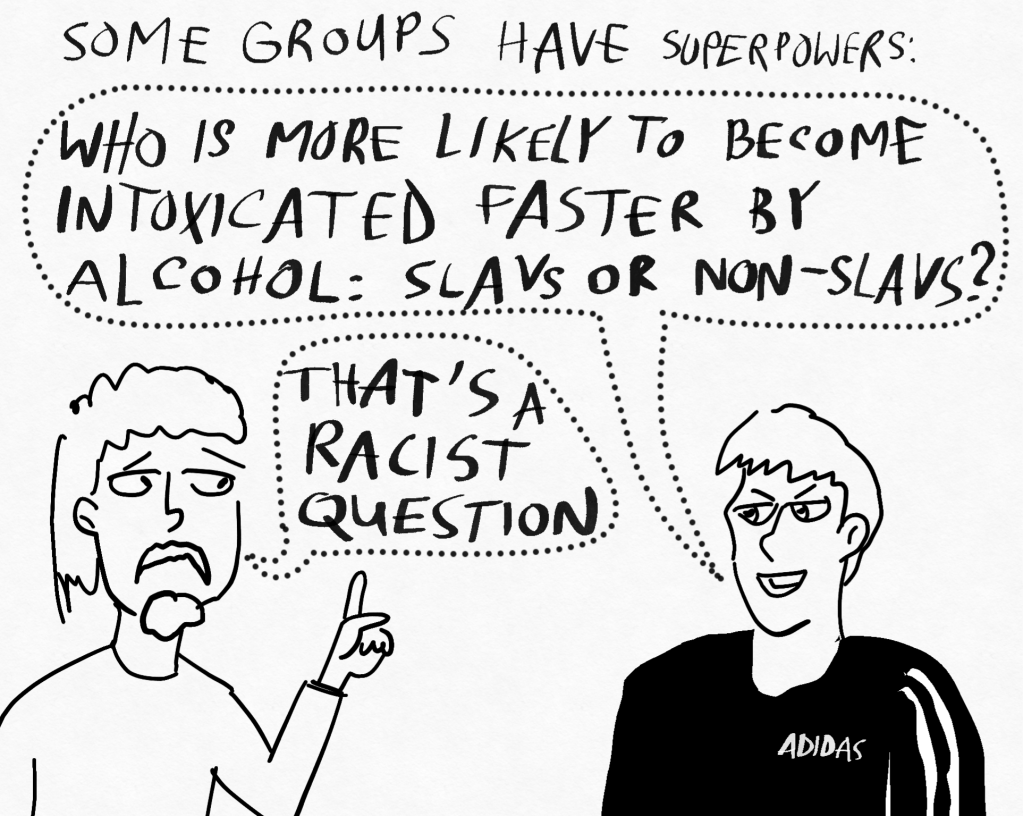 SOME GROUPS HAVE SUPERPOWERS:
WHO IS MORE LIKELY TO BECOME
INTOXICATED FASTER BY
ALCOHOL: SLAVS OR NON-SLAVS?
THAT'S A
RACIST
QUESTION
ADIDAS